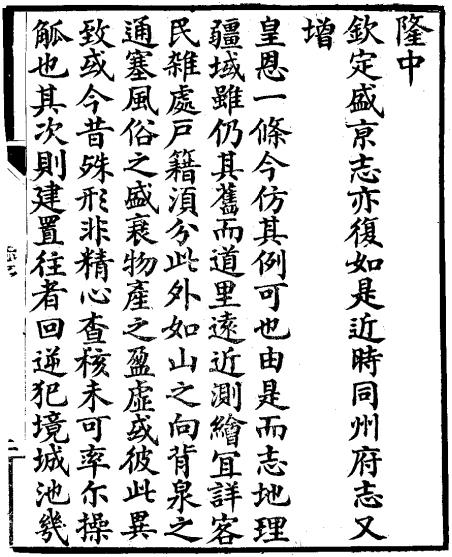 隆中
欽定盛京志亦復如是近時同州府志又
增
皇恩一條今仿其例可也由是而志地理
疆域雖仍其舊而道里遠近測繪宜詳客
民雜處戶籍須分此外如山之向背泉之
通塞風俗之盛衰物產之盈虛或彼此異
致或今昔殊形非精心查核未可率尔操
觚也其次則建置往者回逆犯境城池幾